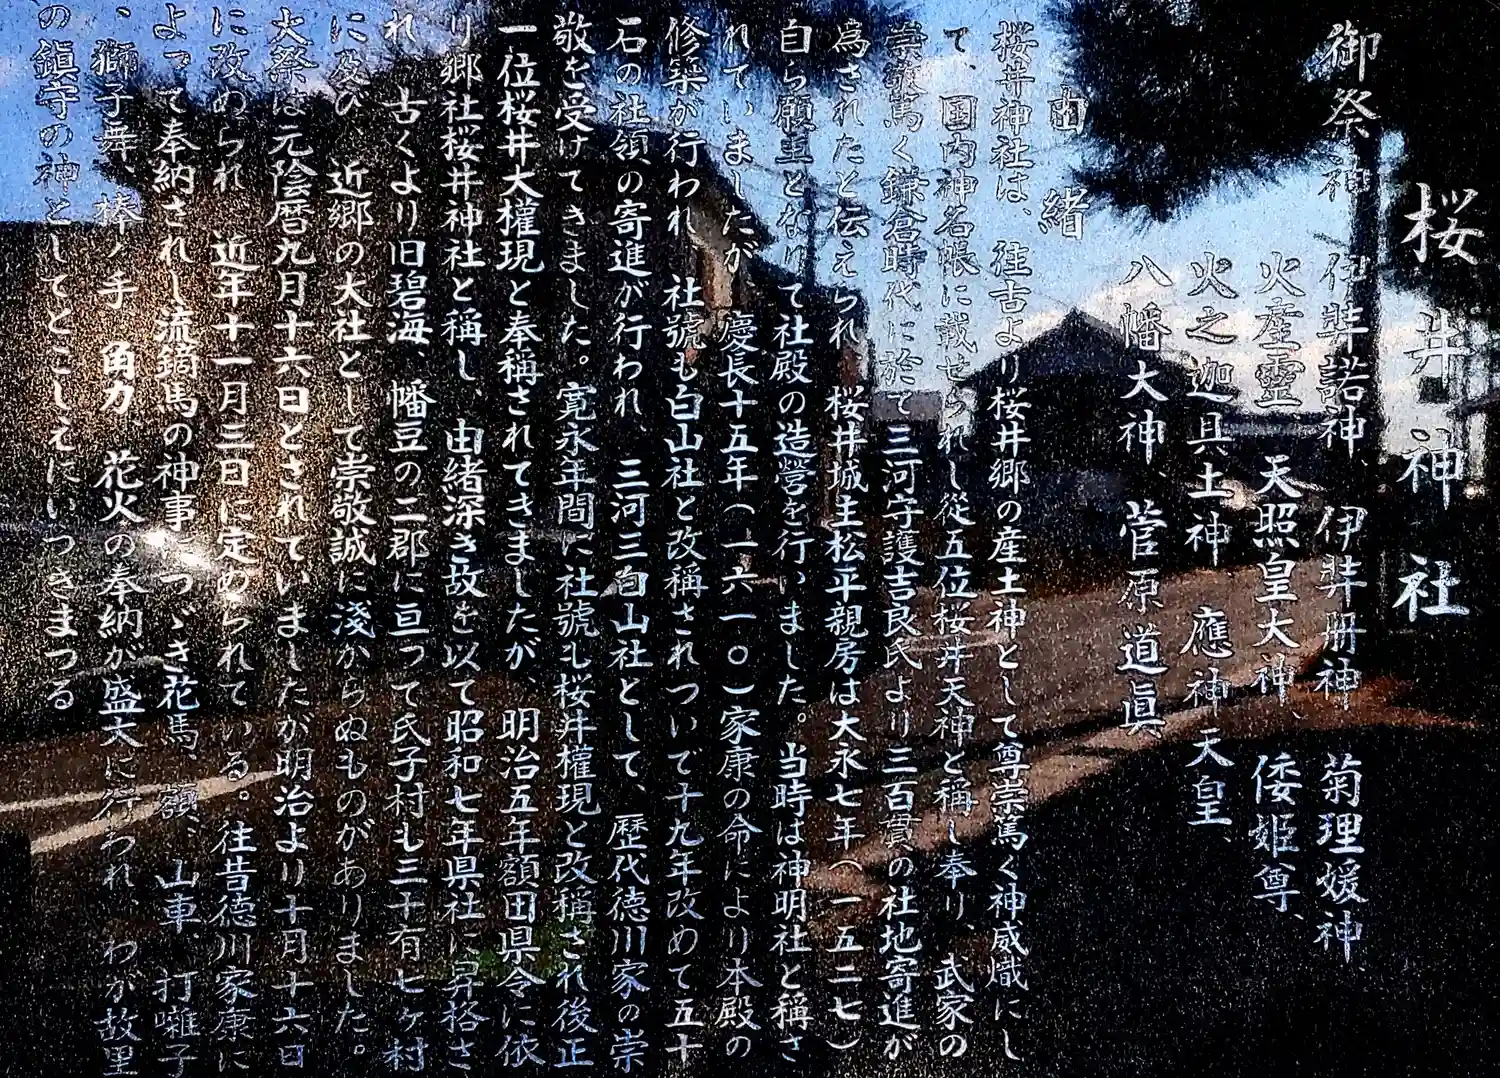 桜井神社
御祭神 伊弉諾神、伊弉册神、菊理媛神、
火産霊 天照皇大神、倭姫尊、
火之迦具土神 應神天皇、
八幡大神、菅原道眞
由緒
桜井神社は、往古より桜井郷の産土神として尊崇篤く神威熾にし
て、国内神名帳に載せられし従五位桜井天神と稱し奉り、武家の
崇敬篤く鎌倉時代に於て三河守護吉良氏より三百貫の社地寄進が
為されたと伝えられ、桜井城主松平親房は大永七年(一五二七)
自ら願主となりて社殿の造營を行いました。当時は神明社と稱さ
れていましたが 慶長十五年(一六一〇)家康の命により本殿の
修築が行われ、社號も白山社と改稱されついで十九年改めて五十
石の社領の寄進が行われ、三河三白山社として、歴代徳川家の崇
敬を受けてきました。寛永年間に社號も桜井權現と改稱され後正
一位桜井大權現と奉稱されてきましたが、明治五年額田県令に依
り郷社桜井神社と稱し、由緒深き故を以て昭和七年県社に昇格さ
れ 古くより旧碧海 幡豆の二郡に亘って氏子村も三十有七ヶ村
に及び 近郷の大社として崇敬誠に淺からぬものがありました。
大祭は元陰暦九月十六日とされていましたが明治より十月十六日
に改められ 近年十一月三日に定められている。往昔徳川家康に
よって奉納されし流鏑馬の神事につゞき花馬、額、山車、打囃子
、獅子舞、棒ノ手 角力、花火の奉納が盛大に行われ、わが故里
の鎭守の神としてとこしえにいつきまつる